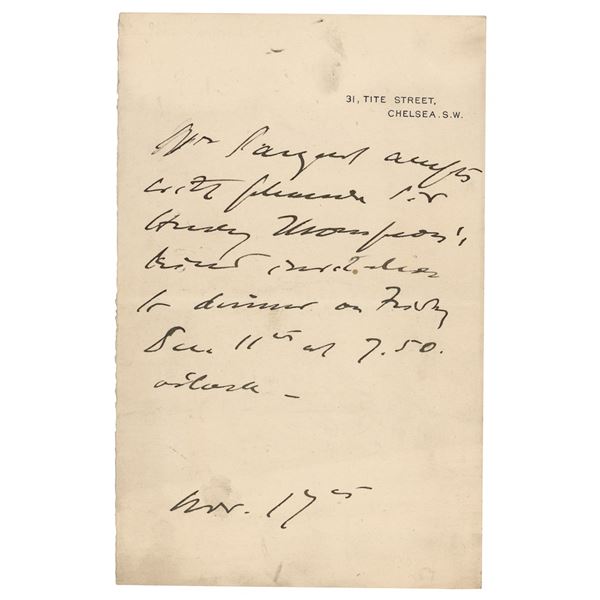 31, TITE STREET,
CHELSEA. S.W.
Mr Sargent accepts
with pleasure Sir
Henry Thompson's
kind invitation
to dinner on Friday
Dec. 11th at 7.50.
o'clock –
Nov. 17th